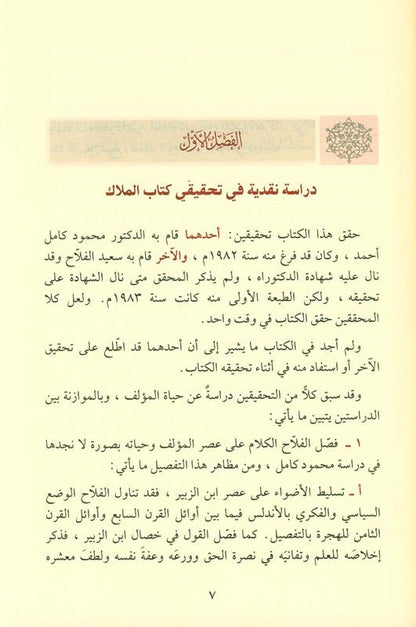 الفصل الأول
دراسة نقدية في تحقيقَي كتاب الملاك
حقق هذا الكتاب تحقيقين: أحدهما قام به الدكتور محمود كامل
أحمد ، وكان قد فرغ منه سنة ١٩٨٢م ، والآخر قام به سعيد الفلاّح وقد
نال عليه شهادة الدكتوراه ، ولم يذكر المحقق متى نال الشهادة على
تحقيقه ، ولكن الطبعة الأولى منه كانت سنة ١٩٨٣م . ولعل كلا
المحققين حقق الكتاب في وقت واحد.
ولم أجد في الكتاب ما يشير إلى أن أحدهما قد اطلع على تحقيق
الآخر أو استفاد منه في أثناء تحقيقه الكتاب.
وقد سبق كلاًّ من التحقيقين دراسةٌ عن حياة المؤلف ، وبالموازنة بين
الدراستين يتبين ما يأتي:
١ ـ فصّل الفلاّح الكلام على عصر المؤلف وحياته بصورة لا نجدها
في دراسة محمود كامل ، ومن مظاهر هذا التفصيل ما يأتي:
أ ـ تسليط الأضواء على عصر ابن الزبير ، فقد تناول الفلاح الوضع
السياسي والفكري بالأندلس فيما بين أوائل القرن السابع وأوائل القرن
الثامن للهجرة بالتفصيل. كما فصّل القول في خصال ابن الزبير ، فذكر
إخلاصَه للعلم وتفانيَه في نصرة الحق وورعَه وعفةَ نفسه ولطفَ معشره
٧